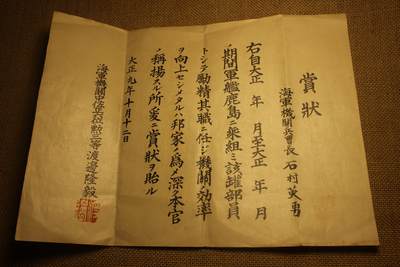 賞狀
海軍機關兵曹長 石村英勇
右自大正 年 月至大正 年 月
ノ期間軍艦鹿島ニ乗組ミ該罐部員
トシテ勵精其職ニ任ジ機關効率
ヲ向上セシメタルハ邦家ノ為メ深ク本官
ノ稱揚スル所爰ニ賞狀ヲ貽ル
大正九年十月十二日
海軍機關中佐正六位勲三等渡邊隆毅